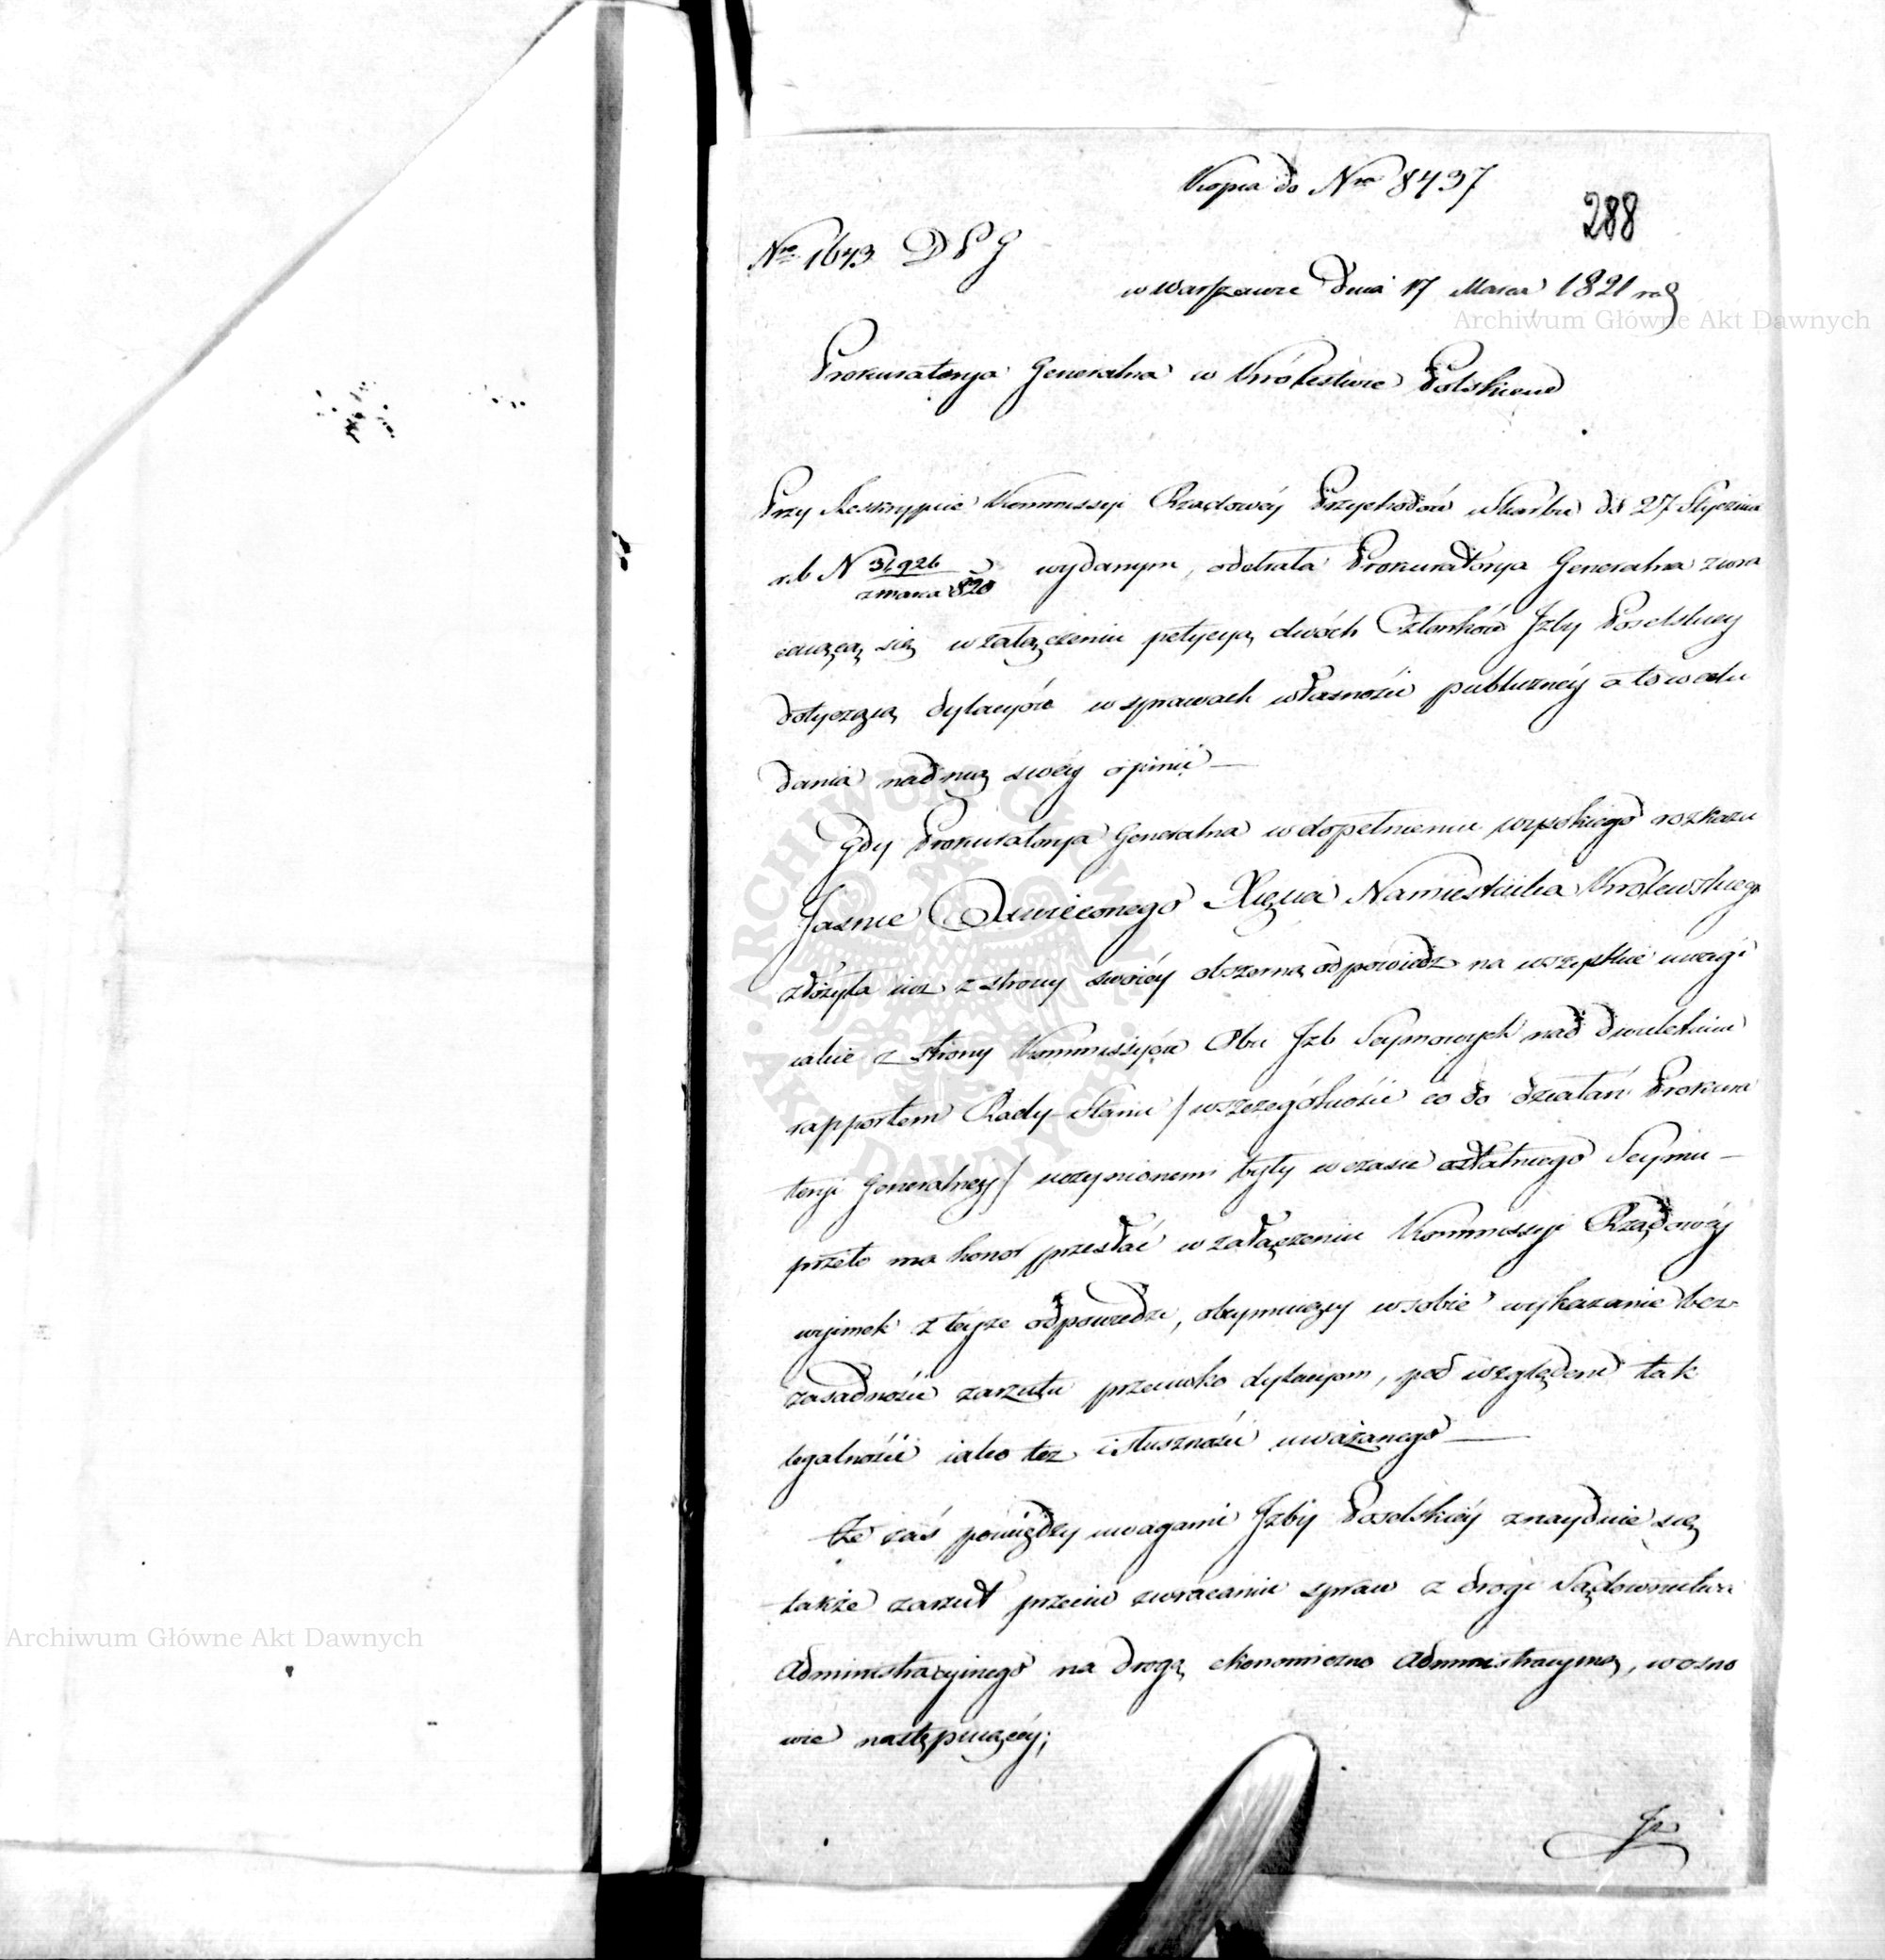 Kopia do Nro 8437
288
Nro 1643 D P G
w Warszawie dnia 17 Marca 1821 rod
Archiwum Główne Akt Dawnych
Prokuratorya Generalna w Królestwie Polskiem
Przy Reskrypcie Kommissyi Rządowéy Przychodów i Skarbu dd 27 Stycznia
r.b N 31,926 / z marca 820 wydanym, odebrała Prokuratorya Generalna zwra
caiącą się w załączeniu petycyą dwóch Członków Jzby Poselskiey
dotyczącą dylacyów w sprawach własności publicznéy a to w celu
dania nad nią swéy opinii —
Gdy Prokuratorya Generalna w dopełnieniu wysokiego rozkazu
Jaśnie Oświeconego Xięcia Namiestnika Królewskiego
złożyła iuż z strony swoiéy obszerną odpowiedz na wszystkie uwagi
iakie z strony Kommissyów Obu Jzb Seymowych nad dwuletnim
rapportem Rady Stanu / w szczególności co do działań Prokura
toryi Generalney / uczynionemi były w czasie ostatniego Seymu —
przeto ma honor przesłać w załączeniu Kommissyi Rządowéy
wyimek z teyże odpowiedzi, obeymuiący w sobie wykazanie bez-
zasadności zarzutu przeciwko dylacyom, pod względem tak
legalności iako też i słuszności uważanego —
Że zaś pomiędzy uwagami Jzby Poselskiéy znayduie się
także zarzut przeciw zwracaniu spraw z drogi Sądownictwa
Administracyinego na drogę ekonomiczno Administracyiną, w osno
wie następuiącéy;
Archiwum Główne Akt Dawnych
ARCHIWUM GŁÓWNE AKT DAWNYCH